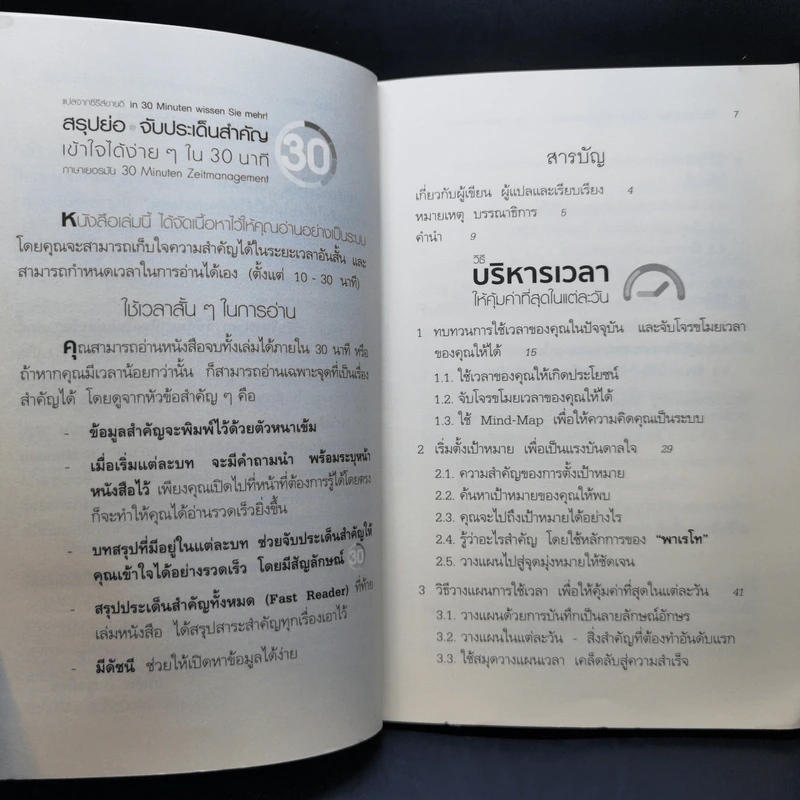 แปลจากซีรีส์ขายดี in 30 Minuten wissen Sie mehr!
สรุปย่อ • จับประเด็นสำคัญ
เข้าใจได้ง่าย ๆ ใน 30 นาที
ภาษาเยอรมัน 30 Minuten Zeitmanagement
30
หนังสือเล่มนี้ ได้จัดเนื้อหาไว้ให้คุณอ่านอย่างเป็นระบบ
โดยคุณจะสามารถเก็บใจความสำคัญได้ในระยะเวลาอันสั้น และ
สามารถกำหนดเวลาในการอ่านได้เอง (ตั้งแต่ 10 - 30 นาที)
ใช้เวลาสั้น ๆ ในการอ่าน
คุณสามารถอ่านหนังสือจบทั้งเล่มได้ภายใน 30 นาที หรือ
ถ้าหากคุณมีเวลาน้อยกว่านั้น ก็สามารถอ่านเฉพาะจุดที่เป็นเรื่อง
สำคัญได้ โดยดูจากหัวข้อสำคัญ ๆ คือ
- ข้อมูลสำคัญจะพิมพ์ไว้ด้วยตัวหนาเข้ม
- เมื่อเริ่มแต่ละบท จะมีคำถามนำ พร้อมระบุหน้า
หนังสือไว้ เพียงคุณเปิดไปที่หน้าที่ต้องการรู้ได้โดยตรง
ก็จะทำให้คุณได้อ่านรวดเร็วยิ่งขึ้น
- บทสรุปที่มีอยู่ในแต่ละบท ช่วยจับประเด็นสำคัญให้
คุณเข้าใจได้อย่างรวดเร็ว โดยมีสัญลักษณ์ 30
- สรุปประเด็นสำคัญทั้งหมด (Fast Reader) ที่ท้าย
เล่มหนังสือ ได้สรุปสาระสำคัญทุกเรื่องเอาไว้
- มีดัชนี ช่วยให้เปิดหาข้อมูลได้ง่าย
7
สารบัญ
เกี่ยวกับผู้เขียน ผู้แปลและเรียบเรียง 4
หมายเหตุ บรรณาธิการ 5
คำนำ 9
วิธี
บริหารเวลา
ให้คุ้มค่าที่สุดในแต่ละวัน
1 ทบทวนการใช้เวลาของคุณในปัจจุบัน และจับโจรขโมยเวลา
ของคุณให้ได้ 15
1.1. ใช้เวลาของคุณให้เกิดประโยชน์
1.2. จับโจรขโมยเวลาของคุณให้ได้
1.3. ใช้ Mind-Map เพื่อให้ความคิดคุณเป็นระบบ
2 เริ่มตั้งเป้าหมาย เพื่อเป็นแรงบันดาลใจ 29
2.1. ความสำคัญของการตั้งเป้าหมาย
2.2. ค้นหาเป้าหมายของคุณให้พบ
2.3. คุณจะไปถึงเป้าหมายได้อย่างไร
2.4. รู้ว่าอะไรสำคัญ โดยใช้หลักการของ “พาเรโท”
2.5. วางแผนไปสู่จุดมุ่งหมายให้ชัดเจน
3 วิธีวางแผนการใช้เวลา เพื่อให้คุ้มค่าที่สุดในแต่ละวัน 41
3.1. วางแผนด้วยการบันทึกเป็นลายลักษณ์อักษร
3.2. วางแผนในแต่ละวัน - สิ่งสำคัญที่ต้องทำอันดับแรก
3.3. ใช้สมุดวางแผนเวลา เคล็ดลับสู่ความสำเร็จ